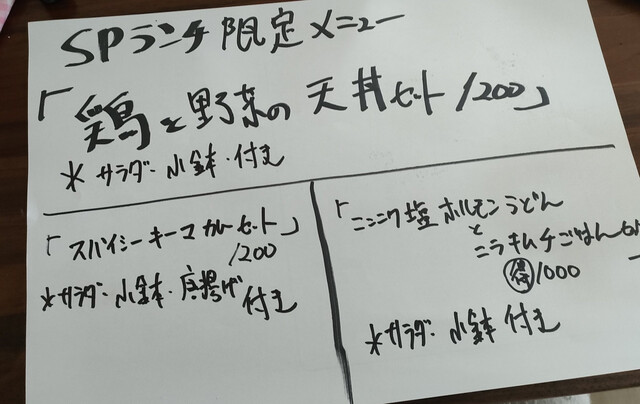 SPランチ 限定メニュー
「鶏と野菜の天丼セット 1200」
* サラダ・小鉢・付き
「スパイシーキーマカレーセット」
1200
*サラダ・小鉢・唐揚げ
付き
「ニンニク塩ホルモンうどん
と
ニラキムチごはん
得 1000
*サラダ・小鉢 付き